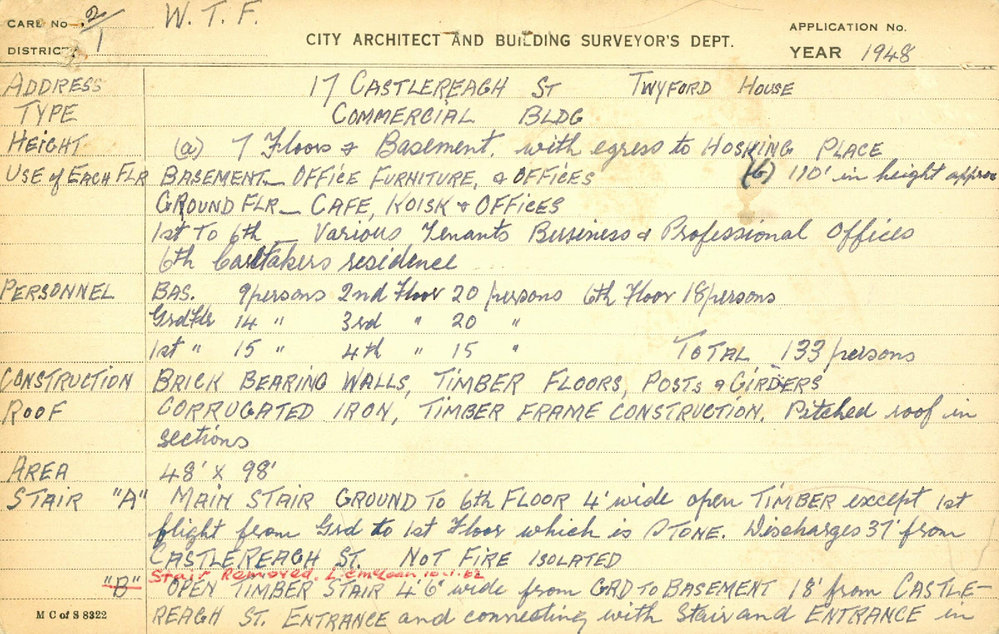 CARD No. 2 W. T. F. APPLICATION No.
DISTRICT 1 CITY ARCHITECT AND BUILDING SURVEYOR'S DEPT. YEAR 1948
ADDRESS 17 CASTLEREAGH ST TWYFORD HOUSE
TYPE COMMERCIAL BLDG
HEIGHT (a) 7 Floors & Basement. with egress to HOSKING PLACE
USE of EACH FLR BASEMENT — OFFICE FURNITURE, & OFFICES (b) 110' in height approx
GROUND FLR — CAFE, KOISK & OFFICES
1st TO 6th — Various Tenants Business & Professional Offices
6th Caretakers residence
PERSONNEL BAS. 9 persons 2nd Floor 20 persons 6th Floor 18 persons
Grd Flr 14 " 3rd " 20 "
1st " 15 " 4th " 15 " TOTAL 133 persons
CONSTRUCTION BRICK BEARING WALLS, TIMBER FLOORS, POSTS & GIRDERS
ROOF CORRUGATED IRON, TIMBER FRAME CONSTRUCTION. Pitched roof in
sections
AREA 48' x 98'
STAIR "A" MAIN STAIR GROUND TO 6th FLOOR 4' wide open TIMBER except 1st
flight from Grd to 1st Floor which is STONE. Discharges 37' from
CASTLEREAGH ST. NOT FIRE ISOLATED
Stair Removed.
"B" OPEN TIMBER STAIR 4'6" wide from GRD TO BASEMENT 18' from CASTLE-
M C of S 8322 REAGH ST. ENTRANCE and connecting with Stair and ENTRANCE in